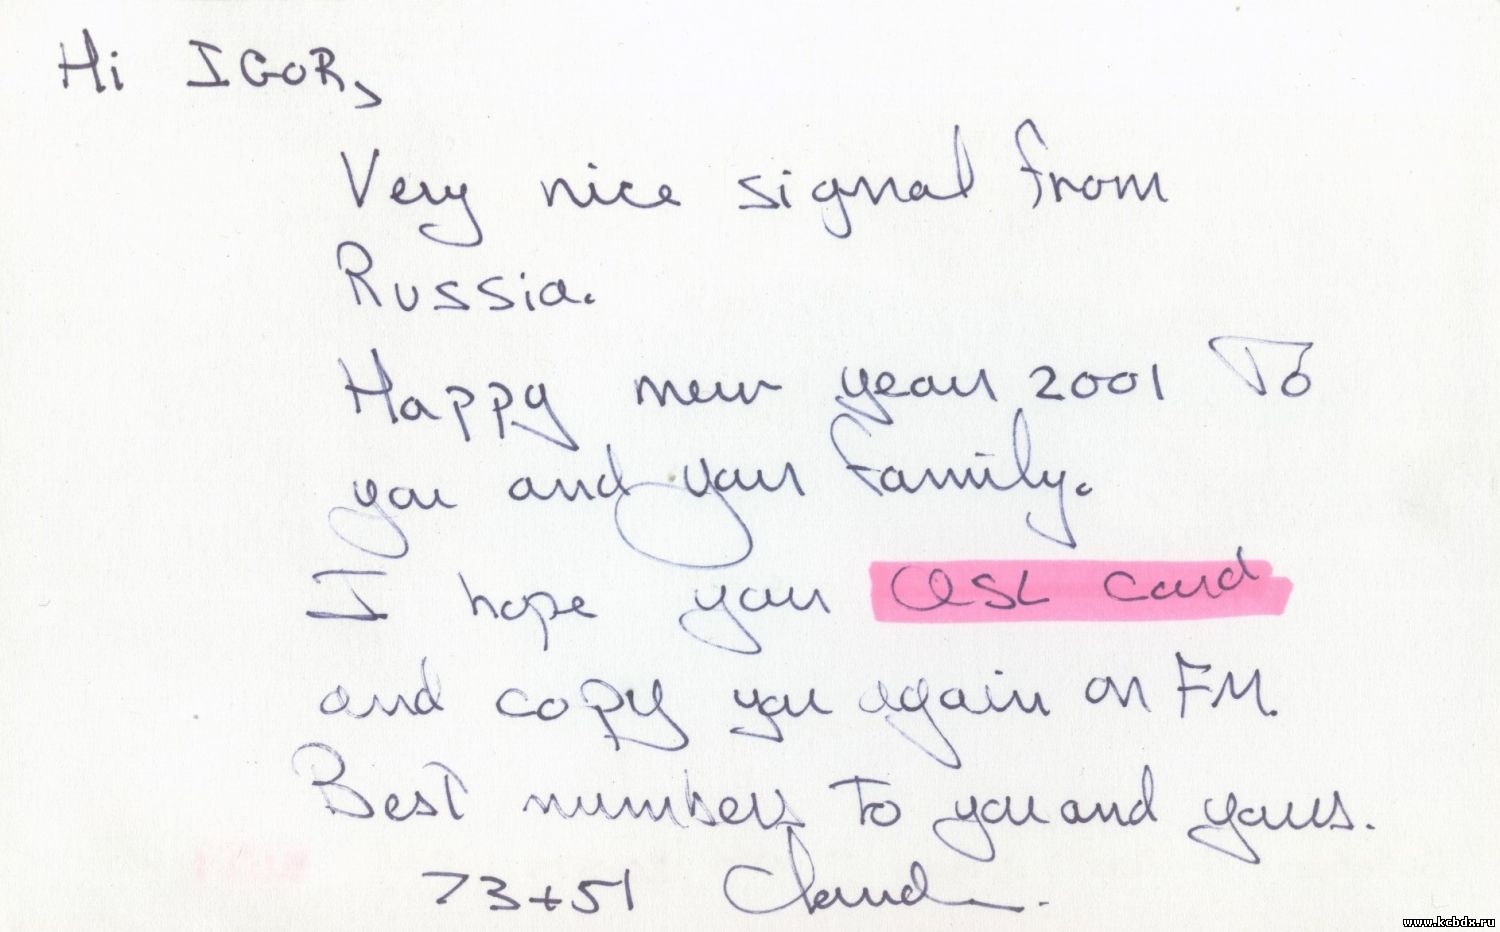 Hi IGOR,
Very nice signal from
Russia.
Happy new year 2001 To
you and your family.
I hope your QSL card
and copy you again on FM.
Best numbers to you and yours.
73+51 Claude.
www.kcbdx.ru